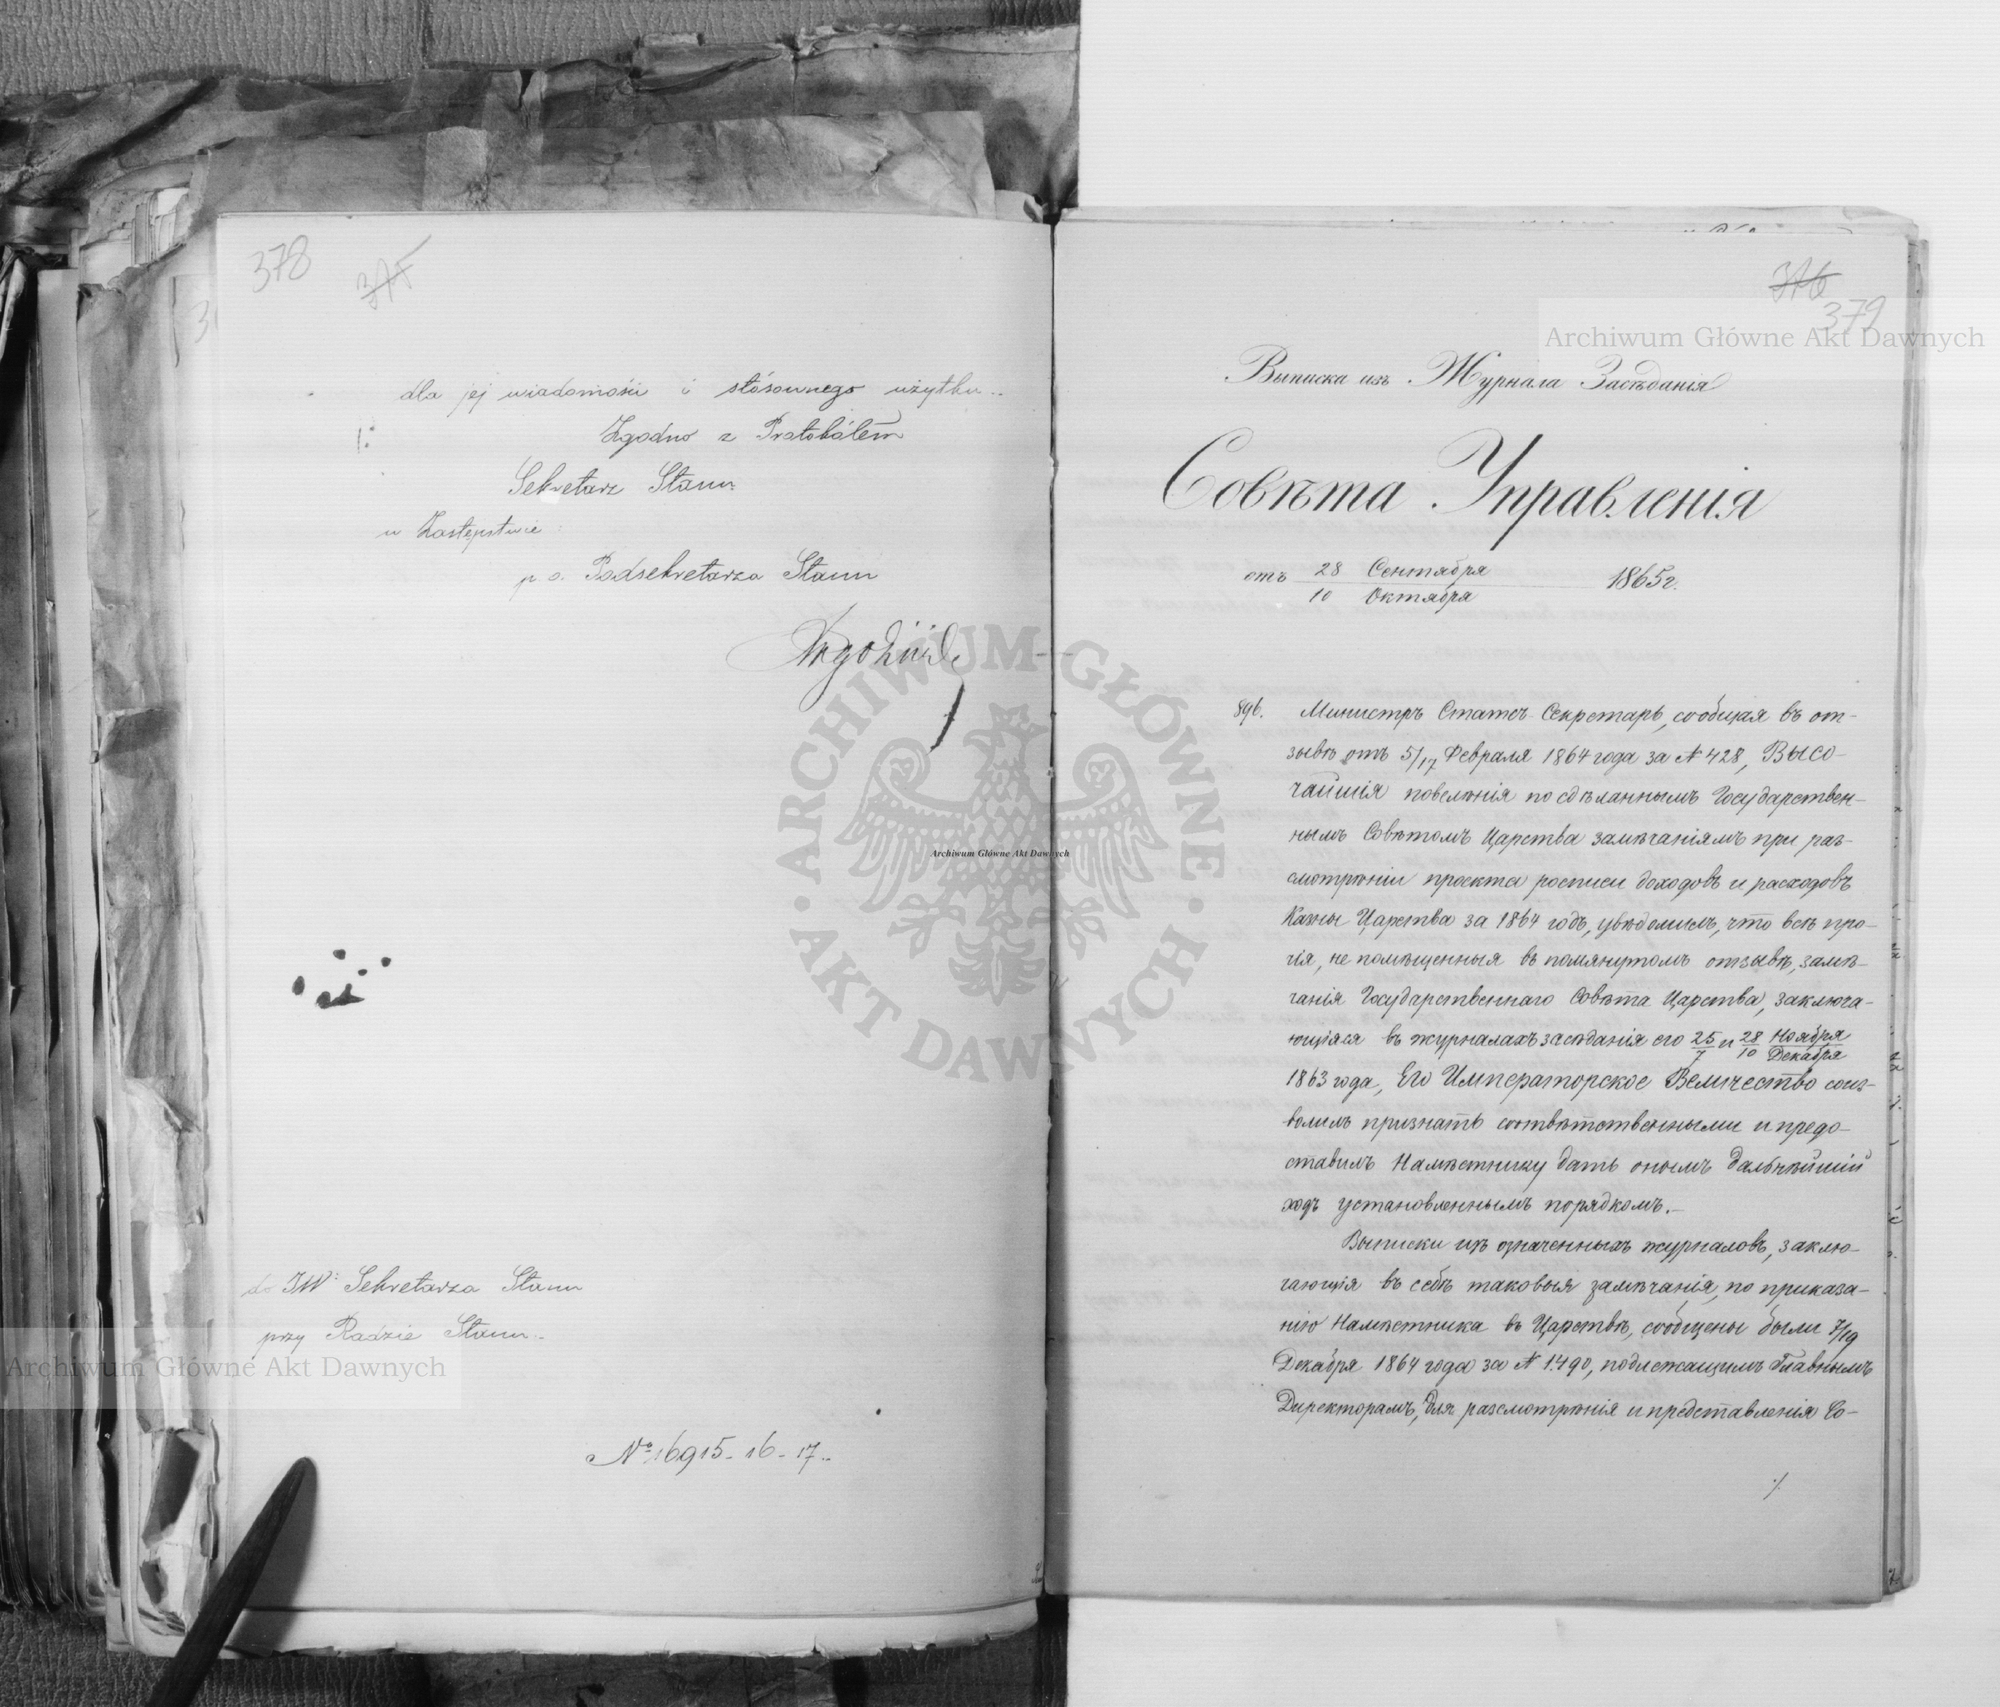 378
375
dla jej wiadomości i stósownego użytku..
Zgodno z Protokółem
Sekretarz Stanu
w Zastępstwie
p. o. Podsekretarza Stanu
do JW: Sekretarza Stanu
przy Radzie Stanu.
No 16915-16-17..
376
379
Выписка изъ Журнала Засѣданія
Совѣта Управленія
отъ 28 Сентября 1865 г.
10 Октября
896. Министръ Статсъ-Секретарь, сообщая въ от-
зывѣ отъ 5/17 Февраля 1864 года за № 428, ВЫСО-
ЧАЙШІЯ повелѣнія по сдѣланнымъ Государствен-
нымъ Совѣтомъ Царства замѣчаніямъ при раз-
смотрѣніи проекта росписи доходовъ и расходовъ
Казны Царства за 1864 годъ, увѣдомилъ, что всѣ про-
чія, не помѣщенныя въ помянутомъ отзывѣ, замѣ-
чанія Государственнаго Совѣта Царства, заключа-
ющіяся въ журналахъ засѣданія его 25/7 и 28/10 Ноября/Декабря
1863 года, Его Императорское Величество соиз-
волилъ признать соотвѣтственными и предо-
ставилъ Намѣстнику дать онымъ дальнѣйшій
ходъ установленнымъ порядкомъ.-
Выписки изъ означенныхъ журналовъ, заклю-
чающія въ себѣ таковыя замѣчанія, по приказа-
нію Намѣстника въ Царствѣ, сообщены были 7/19
Декабря 1864 года за № 1.490, подлежащимъ Главнымъ
Директорамъ, для разсмотрѣнія и представленія Со-
./.
Archiwum Główne Akt Dawnych
Archiwum Główne Akt Dawnych
Archiwum Główne Akt Dawnych
ARCHIWUM GŁÓWNE AKT DAWNYCH